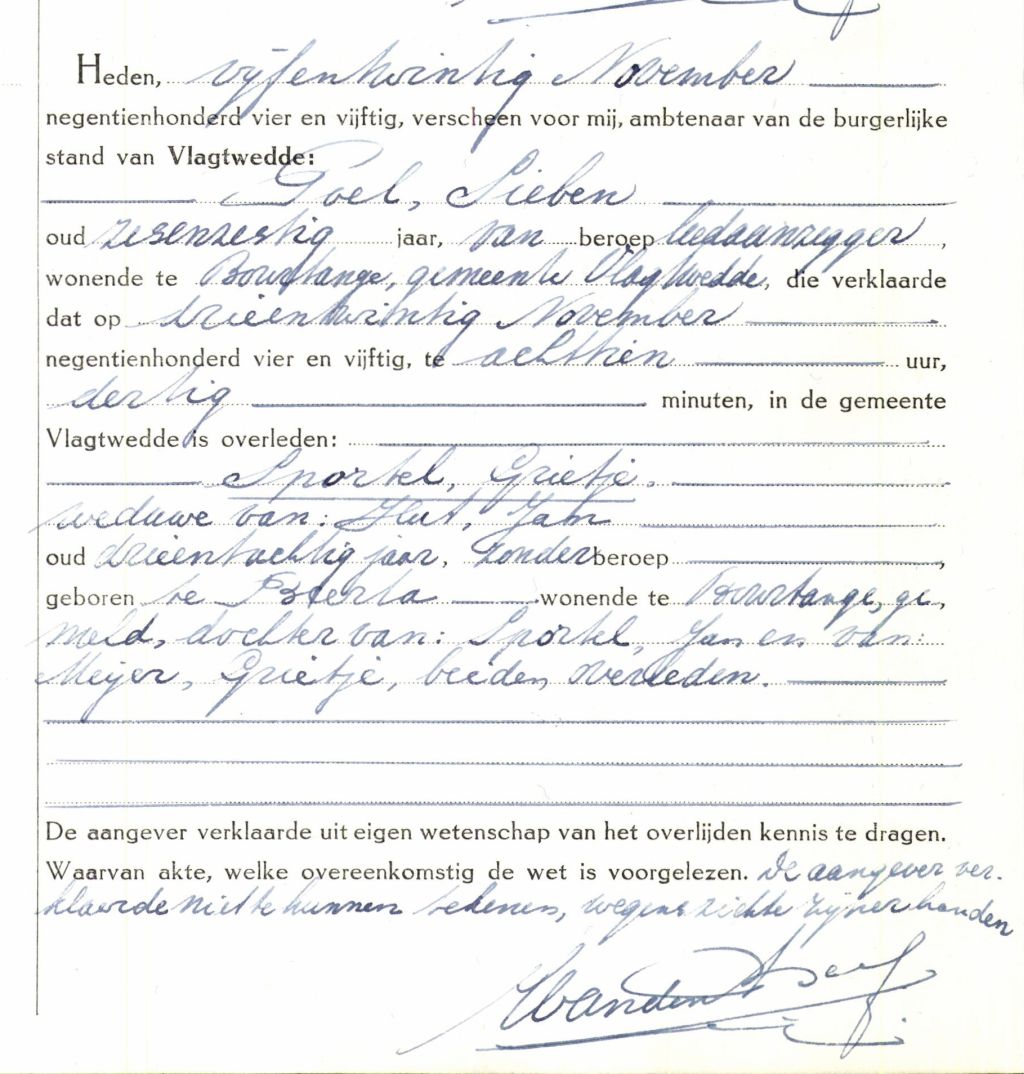 Heden, vijfentwintig November
negentienhonderd vier en vijftig, verscheen voor mij, ambtenaar van de burgerlijke
stand van Vlagtwedde:
Poel, Sieben
oud zesenzestig jaar, van beroep leedaanzegger,
wonende te Bourtange, gemeente Vlagtwedde, die verklaarde
dat op drieentwintig November
negentienhonderd vier en vijftig, te achttien uur,
dertig minuten, in de gemeente
Vlagtwedde is overleden:
Sportel, Grietje.
weduwe van: Hut, Jan
oud drieentachtig jaar, zonder beroep,
geboren te Beerta wonende te Bourtange, ge,
meld, dochter van: Sportel, Jan en van:
Meijer, Grietje, beiden overleden.
De aangever verklaarde uit eigen wetenschap van het overlijden kennis te dragen.
Waarvan akte, welke overeenkomstig de wet is voorgelezen. De aangever ver-
klaarde niet te kunnen tekenen, wegens ziekte zijner handen